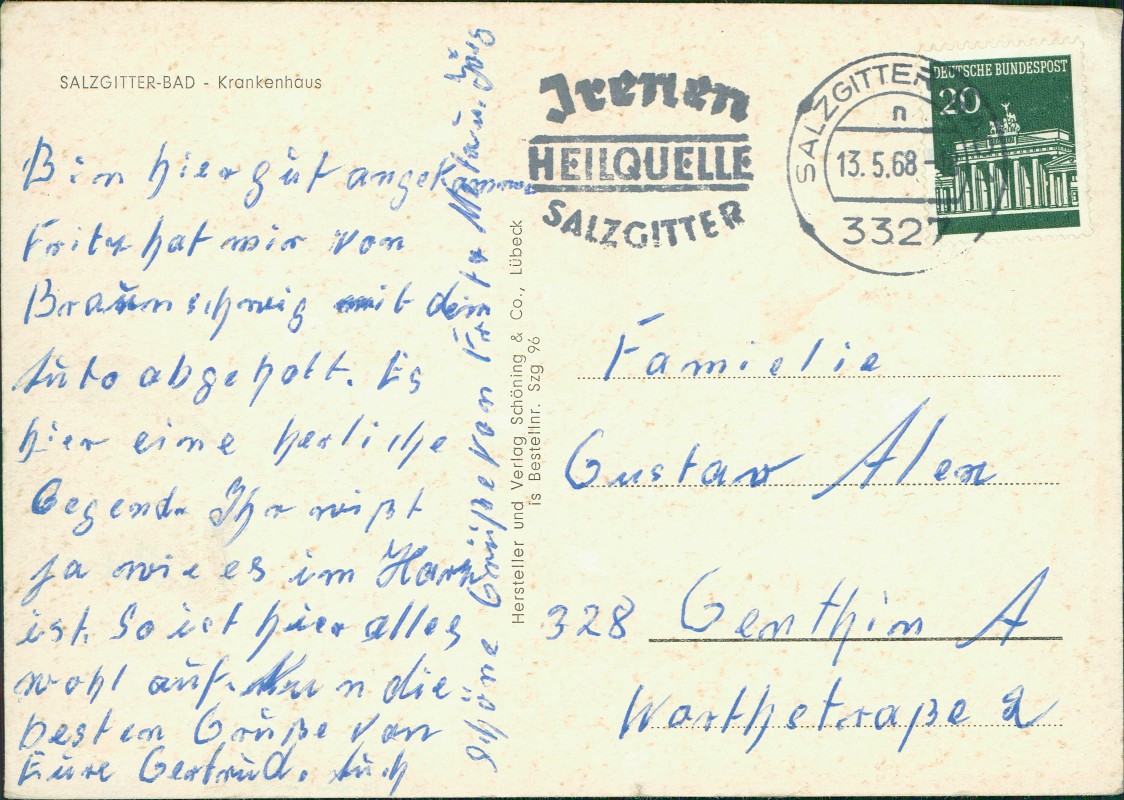 SALZGITTER-BAD - Krankenhaus
Bin hier gut angekommen
Fritz hat mir von
Braunschweig mit dem
Auto abgeholt. Es
hier eine herliche
Gegend. Ihr wißt
ja wie es im Harz
ist. So ist hier alles
wohl auf. Nun die
besten Grüße von
Eure Gertrud. Auch
schöne Grüße von Fritz
Hersteller und Verlag Schöning & Co., Lübeck
is Bestellnr. Szg 96
Irenen
HEILQUELLE
SALZGITTER
SALZGITTER
n
13.5.68
3327
DEUTSCHE BUNDESPOST
20
Famielie
Gustav Alen
328 Genthin A
Worthstraße 2